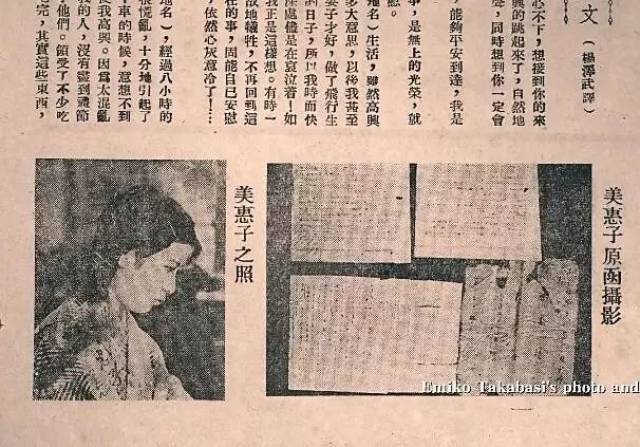 文（楊澤武譯）
心不下，想接到你的來
興的跳起來了，自然地
聲，同時想到你一定會
，能夠平安到達，我是
事，是無上的光榮，就
慰。
地名）生活，雖然高興
多大意思，以後我甚至
妻子才好，做了飛行生
的日子，所以我時而快
深處儘是在哀泣着！如
我正是這樣想。有時一
故地犧牲，不再回到這
在的事，固能自己安慰
，依然心灰意冷了！…
地名），經過八小時的
很慌亂，十分地引起了
車的時候，意想不到
使我高興。因爲太混亂
我的人，沒有盡到禮節
他們。領受了不少吃
完，其實這些東西，
美惠子原函攝影
美惠子之照
Emiko Takabasi's photo and